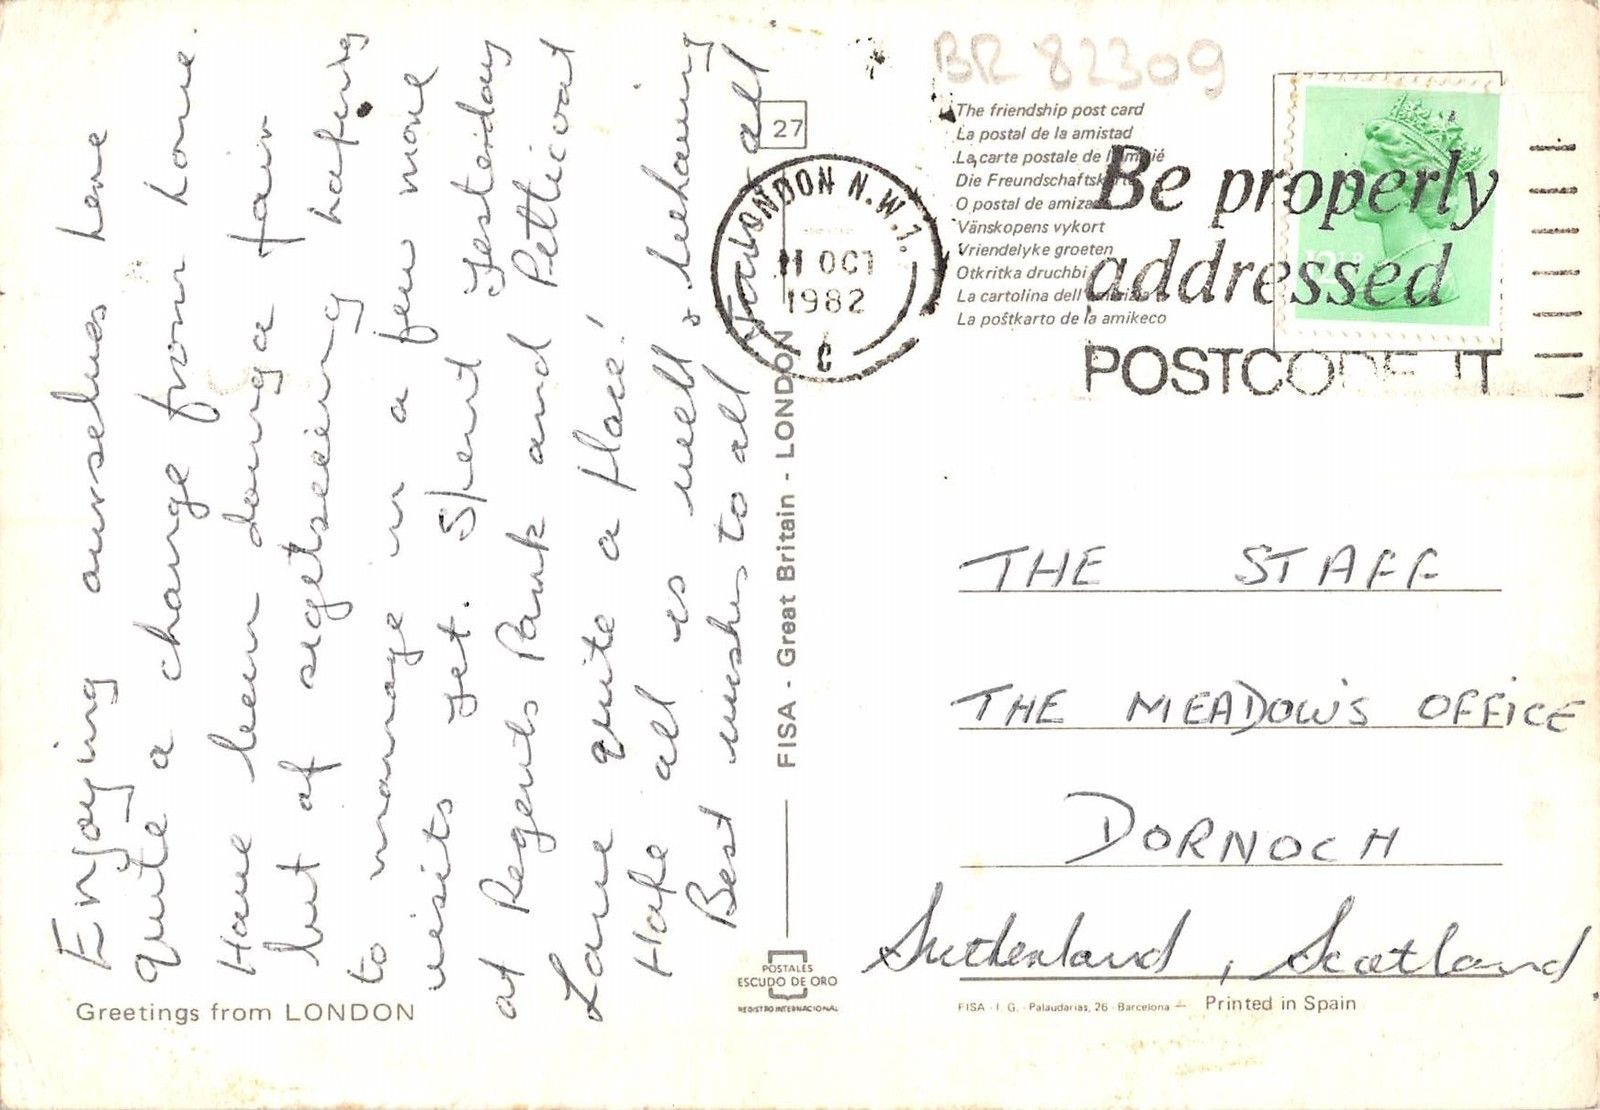 Enjoying ourselves here
quite a change from home.
Have been doing a fair
bit of sightseeing hoping
to manage in a few more
visits yet. Spent Yesterday
at Regents Park and Petticoat
Lane quite a place!
Hope all is well & behaving
Best wishes to all
all
Greetings from LONDON
27
FISA - Great Britain - LONDON
POSTALES
ESCUDO DE ORO
REGISTRO INTERNACIONAL
BR 82309
The friendship post card
La postal de la amistad
La carte postale de l'amitié
Die Freundschafts
O postal de amiza
Vänskopens vykort
Vriendelyke groeten
Otkritka druchbi
La cartolina dell
La poŝtkarto de la amikeco
LONDON N.W.1.
11 OCT
1982
C
Be properly
addressed
POSTCODE IT
12½P
THE STAFF
THE MEADOWS OFFICE
DORNOCH
Sutherland, Scotland
FISA - I. G. - Palaudarias, 26 - Barcelona - Printed in Spain